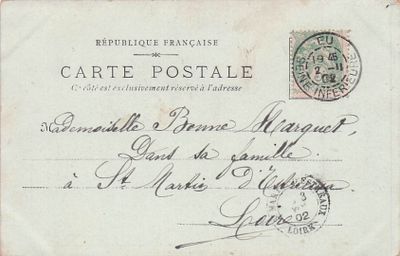 RÉPUBLIQUE FRANÇAISE
CARTE POSTALE
Ce côté est exclusivement réservé à l'adresse
EU
SEINE INFÉRIEURE
02
Mademoiselle Bonne Marquet,
Dans sa famille
à St Martin d'Estréaux
Loire
02
LOIRE